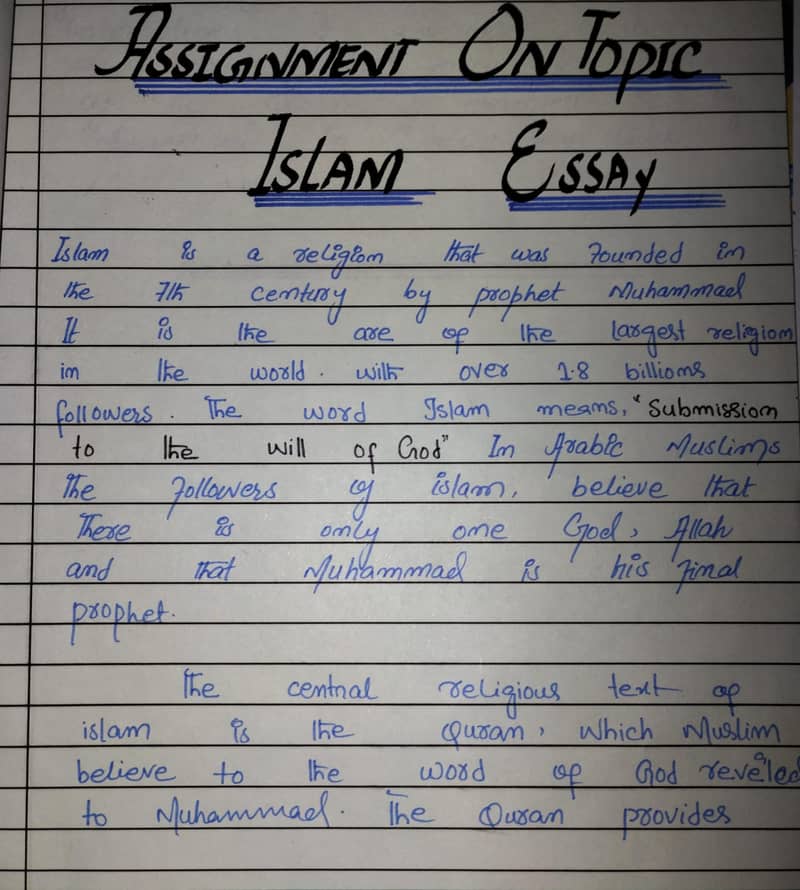 ASSIGNMENT ON TOPIC
ISLAM ESSAY
Islam is a religion that was founded in
the 7th century by prophet Muhammad
It is the are of the largest religion
in the world. with over 1.8 billions
followers. The word Islam means, "Submission
to the will of God" In Arabic Muslims
The followers of islam, believe that
There is only one God, Allah
and that Muhammad is his final
prophet.
The central religious text of
islam is the Quran, which Muslim
believe to the word of God reveled
to Muhammad. The Quran provides